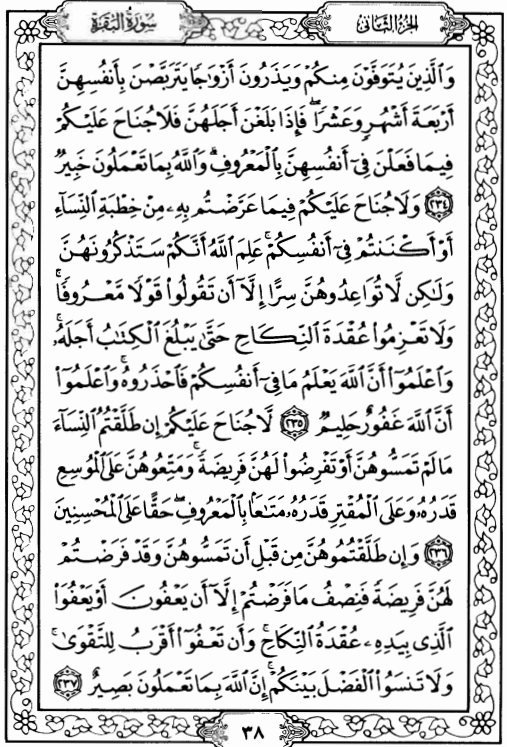 الجزء الثاني
سورة البقرة
وَالَّذِينَ يُتَوَفَّوْنَ مِنكُمْ وَيَذَرُونَ أَزْوَٰجًا يَتَرَبَّصْنَ بِأَنفُسِهِنَّ
أَرْبَعَةَ أَشْهُرٍ وَعَشْرًا ۖ فَإِذَا بَلَغْنَ أَجَلَهُنَّ فَلَا جُنَاحَ عَلَيْكُمْ
فِيمَا فَعَلْنَ فِىٓ أَنفُسِهِنَّ بِالْمَعْرُوفِ ۗ وَاللَّهُ بِمَا تَعْمَلُونَ خَبِيرٌ
٢٣٤ وَلَا جُنَاحَ عَلَيْكُمْ فِيمَا عَرَّضْتُم بِهِۦ مِنْ خِطْبَةِ النِّسَآءِ
أَوْ أَكْنَنتُمْ فِىٓ أَنفُسِكُمْ ۚ عَلِمَ اللَّهُ أَنَّكُمْ سَتَذْكُرُونَهُنَّ
وَلَٰكِن لَّا تُوَاعِدُوهُنَّ سِرًّا إِلَّآ أَن تَقُولُوا۟ قَوْلًا مَّعْرُوفًا ۚ
وَلَا تَعْزِمُوا۟ عُقْدَةَ النِّكَاحِ حَتَّىٰ يَبْلُغَ الْكِتَٰبُ أَجَلَهُۥ ۚ
وَاعْلَمُوٓا۟ أَنَّ اللَّهَ يَعْلَمُ مَا فِىٓ أَنفُسِكُمْ فَاحْذَرُوهُ ۚ وَاعْلَمُوٓا۟
أَنَّ اللَّهَ غَفُورٌ حَلِيمٌ ٢٣٥ لَّا جُنَاحَ عَلَيْكُمْ إِن طَلَّقْتُمُ النِّسَآءَ
مَا لَمْ تَمَسُّوهُنَّ أَوْ تَفْرِضُوا۟ لَهُنَّ فَرِيضَةً ۚ وَمَتِّعُوهُنَّ عَلَى الْمُوسِعِ
قَدَرُهُۥ وَعَلَى الْمُقْتِرِ قَدَرُهُۥ مَتَٰعًۢا بِالْمَعْرُوفِ ۖ حَقًّا عَلَى الْمُحْسِنِينَ
٢٣٦ وَإِن طَلَّقْتُمُوهُنَّ مِن قَبْلِ أَن تَمَسُّوهُنَّ وَقَدْ فَرَضْتُمْ
لَهُنَّ فَرِيضَةً فَنِصْفُ مَا فَرَضْتُمْ إِلَّآ أَن يَعْفُونَ أَوْ يَعْفُوَا۟
الَّذِى بِيَدِهِۦ عُقْدَةُ النِّكَاحِ ۚ وَأَن تَعْفُوٓا۟ أَقْرَبُ لِلتَّقْوَىٰ ۚ
وَلَا تَنسَوُا۟ الْفَضْلَ بَيْنَكُمْ ۚ إِنَّ اللَّهَ بِمَا تَعْمَلُونَ بَصِيرٌ ٢٣٧
٣٨